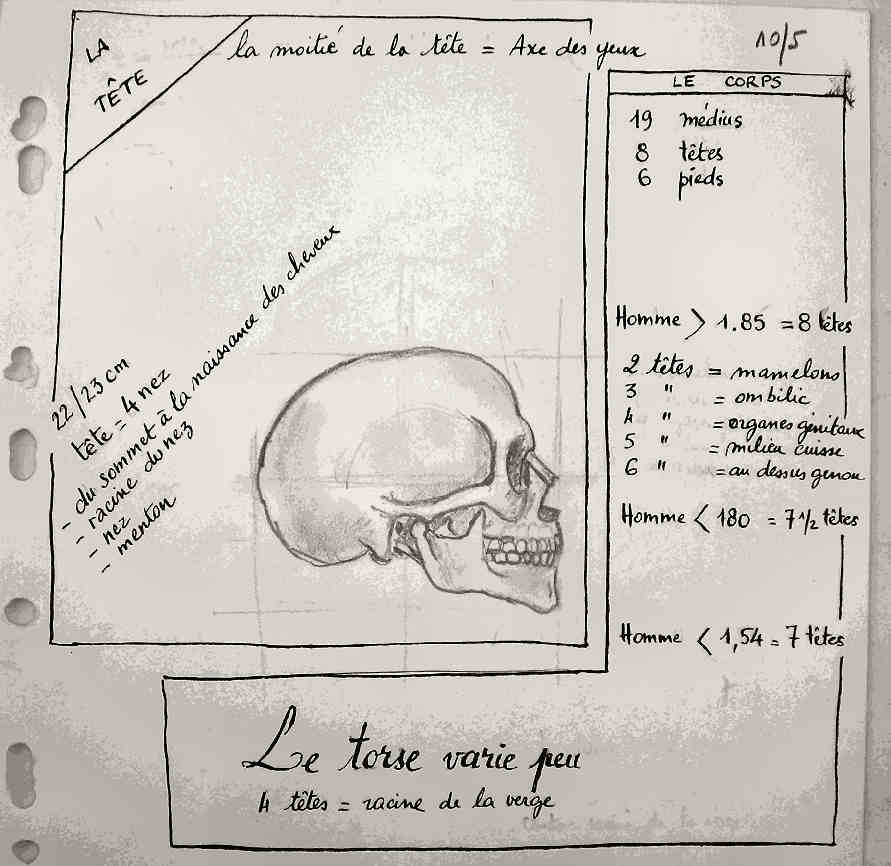 LA
TÊTE
la moitié de la tête = Axe des yeux
10/5
22/23 cm
tête = 4 nez
- du sommet à la naissance des cheveux
- racine du nez
- nez
- menton
LE CORPS
19 médius
8 têtes
6 pieds
Homme > 1.85 = 8 têtes
2 têtes = mamelons
3 " = ombilic
4 " = organes génitaux
5 " = milieu cuisse
6 " = au dessus genou
Homme < 180 = 7 1/2 têtes
Homme < 1,54 = 7 têtes
Le torse varie peu
4 têtes = racine de la verge